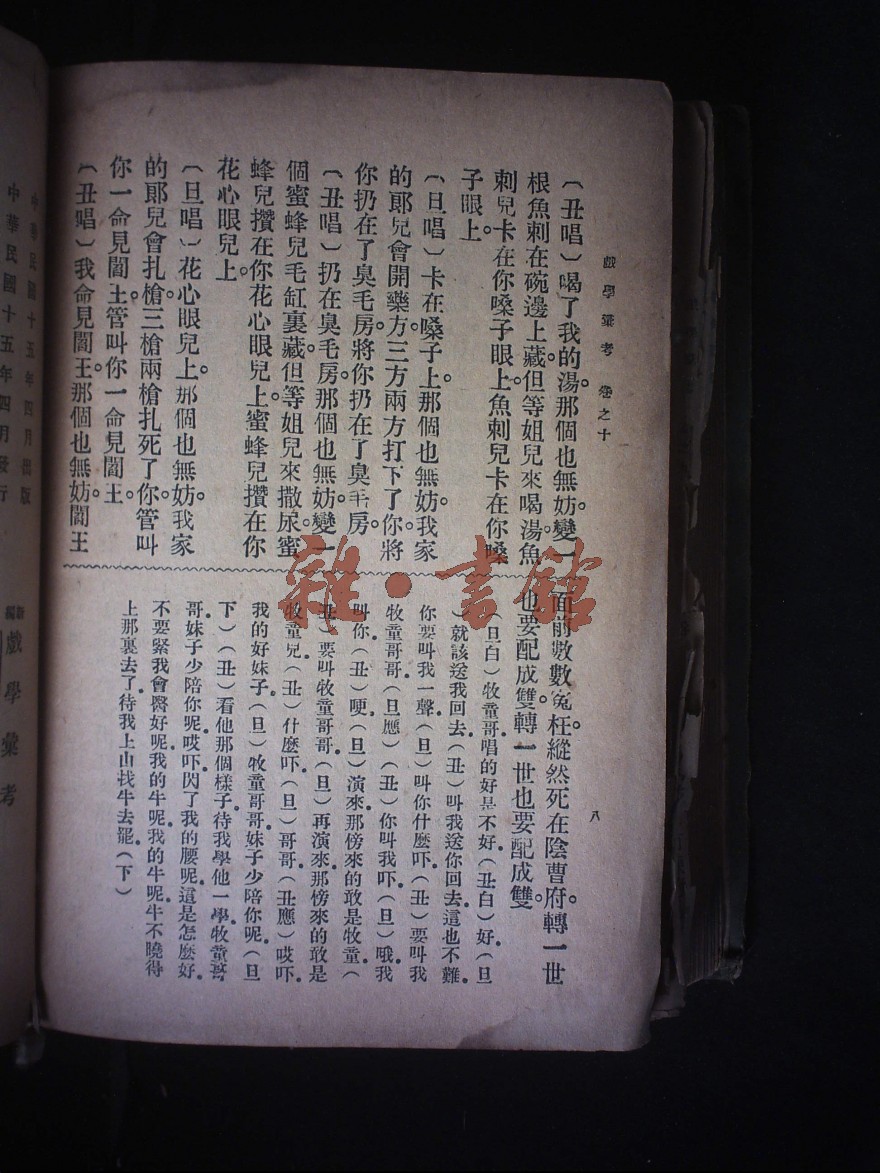 戲學彙考　卷之十
（丑唱）喝了我的湯。那個也無妨。變一
根魚刺在碗邊上藏。但等姐兒來喝湯魚
刺兒卡在你嗓子眼上。魚刺兒卡在你嗓
子眼上。
（旦唱）卡在嗓子上。那個也無妨。我家
的郎兒會開藥方。三方兩方打下了你將
你扔在了臭毛房。將你扔在了臭毛房。
（丑唱）扔在臭毛房。那個也無妨。變一
個蜜蜂兒毛缸裏藏。但等姐兒來撒尿。蜜
蜂兒攢在你花心眼兒上。蜜蜂兒攢在你
花心眼兒上。
（旦唱）花心眼兒上。那個也無妨。我家
的郎兒會扎槍。三槍兩槍扎死了你。管叫
你一命見閻王。管叫你一命見閻王。
（丑唱）我命見閻王。那個也無妨。閻王
面前敷數冤枉。縱然死在陰曹府。轉一世
也要配成雙。轉一世也要配成雙。
（旦白）牧童哥唱的好是不好（丑白）好（旦
）就該送我回去（丑）叫我送你回去。這也不難。
你要叫我一聲（旦）叫你什麼吓（丑）要叫我
牧童哥哥（旦應）（丑）你叫我吓（旦）哦我
叫你（丑）哽（旦）演來。那傍來的敢是牧童（
丑）要叫牧童哥哥（旦）再演來。那傍來的敢是
牧童兒（丑）什麼吓（旦）哥哥（丑應）哎吓。
我的好妹子（旦）牧童哥哥。妹子少陪你呢。（旦
下）（丑）看他那個樣子。待我學他一學。牧童哥
哥。妹子少陪你呢。哎吓。閃了我的腰呢。這是怎麼好。
不要緊。我會醫好呢。我的牛呢。我的牛呢。牛不曉得
上那裏去了。待我上山找牛去罷（下）
八
中華民國十五年四月出版
中華民國十五年四月發行
新編
戲學彙考
雜·書館